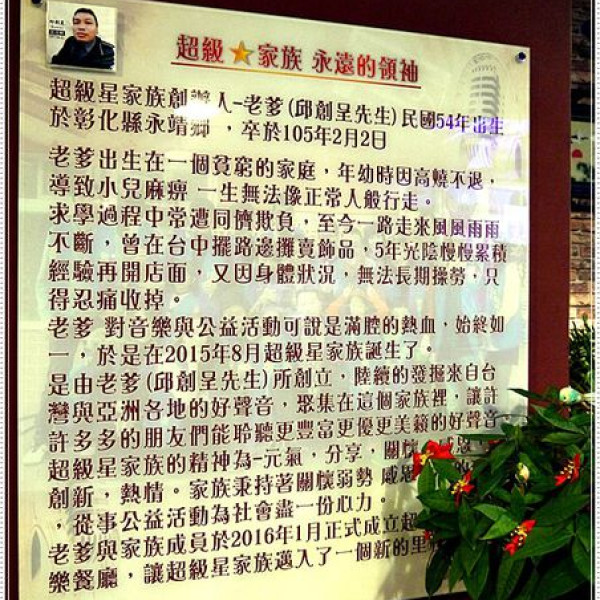 超級★家族 永遠的領袖
超級星家族創辦人-老爹(邱創呈先生)民國54年出生
於彰化縣永靖鄉 ，卒於105年2月2日
老爹出生在一個貧窮的家庭，年幼時因高燒不退，
導致小兒麻痹 一生無法像正常人般行走。
求學過程中常遭同儕欺負，至今一路走來風風雨雨
不斷，曾在台中擺路邊攤賣飾品，5年光陰慢慢累積
經驗再開店面，又因身體狀況，無法長期操勞，只
得忍痛收掉。
老爹 對音樂與公益活動可說是滿腔的熱血，始終如
一，於是在2015年8月超級星家族誕生了。
是由老爹(邱創呈先生)所創立，陸續的發掘來自台
灣與亞洲各地的好聲音，聚集在這個家族裡，讓許
許多多的朋友們能聆聽更豐富更優更美籟的好聲音
超級星家族的精神為-元氣，分享，關懷，感恩，
創新，熱情。家族秉持著關懷弱勢 感恩
，從事公益活動為社會盡一份心力。
老爹與家族成員於2016年1月正式成立超
樂餐廳，讓超級星家族邁入了一個新的里